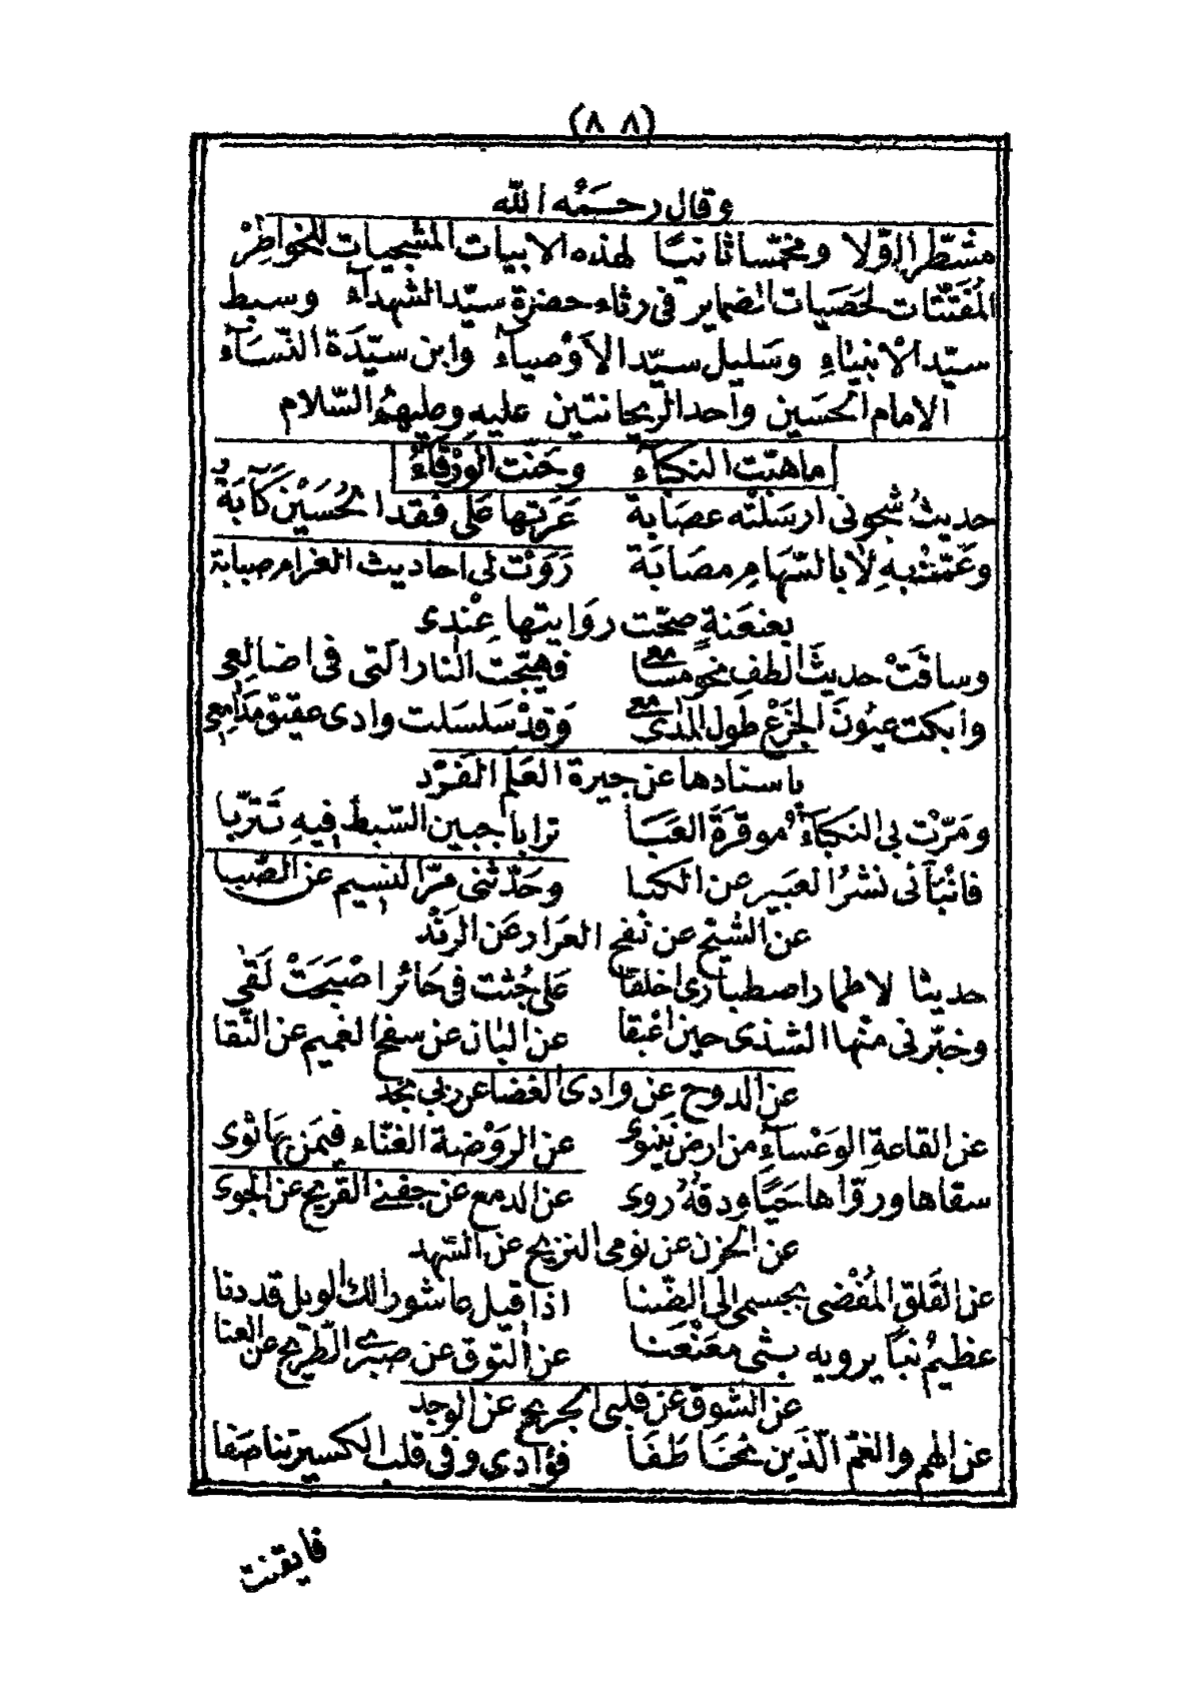 (٨٨)
وقال رحمه الله
مشطّراً اوّلا ومخمّسا ثانيًا لهذه الابيات المشجيات للخواطرْ
المُفَتِّتات لحَصَيات الضماير فى رثاء حضرة سيّد الشهدآء وسبط
سيّد الأنبيَاءِ وسَليل سيّد الأوْصيآء وابن سيّدَة النّسَآء
الامام الحُسَين واحد الريحانتين عليه وعليهمُ السّلام
ما هبّت النكبآء وحَنّت الوَرْقآءُ
حديثُ شجونى ارسَلتْه عصَابة عَرَتها عَلى فقد الحُسَيْن كَآبَةٌ
وعَمّتْ بهِ لا بالسّهَامِ مصَابَة رَوَتْ لى احاديث الغرام صبابة
بعَنعَنةٍ صحّت روَايتها عِنْدى
وساقَتْ حديثَ الطف نحوَ مسَامعى فهيّجَت النار الّتى فى اضالعى
وابكت عيُونَ الجَزْع طول المدَى معى وَقدْ سَلسَلت وادى عقيْق مدَامعى
باسنادها عن جيرة العَلَم الفَرْد
ومَرّت بى النكبَآءُ موقرَةَ العَبَا ترابا جبين السّبط فيهِ تَترّبا
فانْبَآنى نشرُ العبَير عن الكبا وحَدّثنى مرّ النسيم عن الصَّبا
عن الشيح عن نفح العرَار عَن الرَنْد
حديثا لاظمار اصطبارى اخلقا عَلى جُثث فى حَائر اصْبَحَتْ لَقى
وخبّرنى منْها الشذى حين اعْبقا عن البان عن سفح الغميم عن النّقا
عن الدوح عن وادى الغضا عن ربى نجد
عن القاعةِ الوَعْسآءِ من ارض نِينوى عن الروْضة الغنّاء فيمَن بهَا ثوى
سقاها وروّاها حَيًا ودقهُ روى عن الدمع عن جفنى القريح عن الجوى
عن الحزن عن نومى النزيح عن السّهد
عن القَلَقِ المُفْضى بجسمى الى الضّنا اذا قيل عاشورا لك الويل قد دنا
عظيمُ نبًا يرويه بثى معَنْعَنا عن التوق عن صبرى الطريح عن العنا
عن الشوق عن قلبى الجريح عن الوجد
عن الهم والغمّ الّذَين نحَا طَفَا فؤادى وفى قلب الكسير تناصَفا
فايقنت